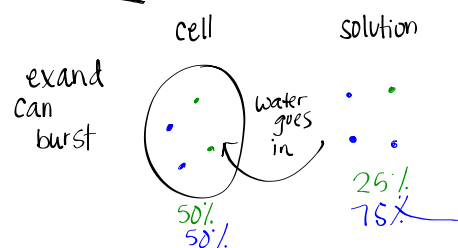 cell
solution
exand
can
burst
water
goes
in
50%
50%
25%
75%